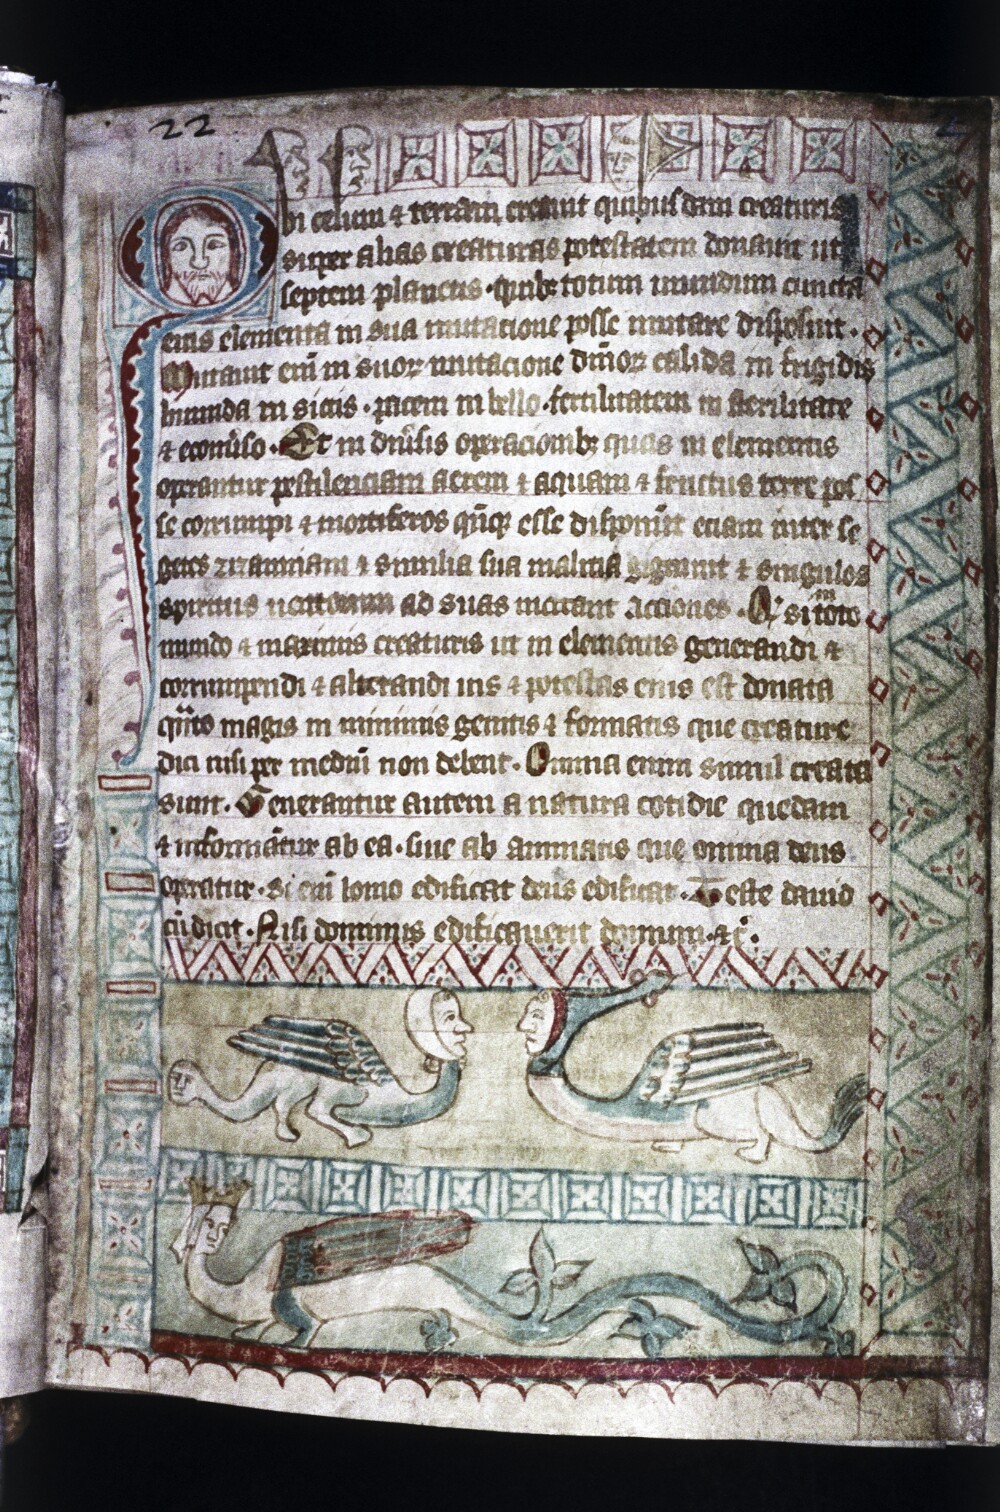 22
Qui celum & terram creauit quibusdam creaturis
super alias creaturas potestatem donauit ut
septem planetis · quibꝫ totum mundum cuncta
eius elementa in sua mutacione posse mutare disposuit ·
Mutant em̄ in suoꝝ mutacione calida in frigidis
humida in siccis · pacem in bello · fertilitatem in sterilitate
& econuerso · Et in diuersis operacionibꝫ quas in elementis
operantur pestilenciam aerem & aquam & fructus terre pos
se corrumpi & mortiferos esse disponūt eciam inter se
zizanniam & similia sua malitia gignunt & singulos
spiritus ad suas incitant acciones · si in toto
mundo & maximis creaturis ut in elementis generandi &
corrumpendi & alterandi ius & potestas eius est donata
magis in minimis genitis & formatis que creature
dici nisi per mediū non debent · Omnia enim simul creata
sunt · Generantur autem a natura cotidie quedam
& informātur ab ea · siue ab animatis que omnia deus
operatur · Si em̄ homo edificat deus edificat · Teste dauid
cū dicit · Nisi dominus edificauerit domum · &c̄ ·